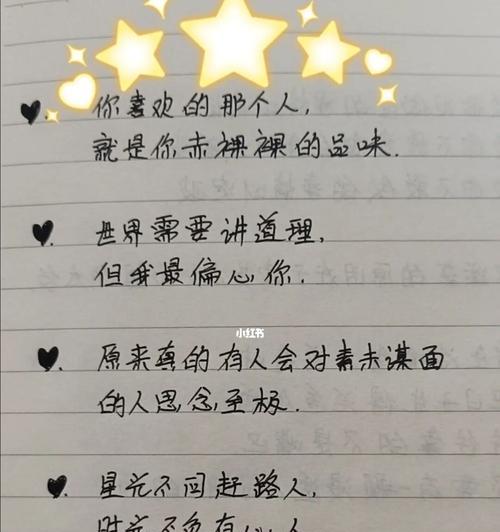 你喜欢的那个人,
就是你赤裸裸的品味.
世界需要讲道理,
但我最偏心你.
小红书
原来真的有人会对素未谋面
的人思念至极.
星光不问赶路人,
时光不负有心人